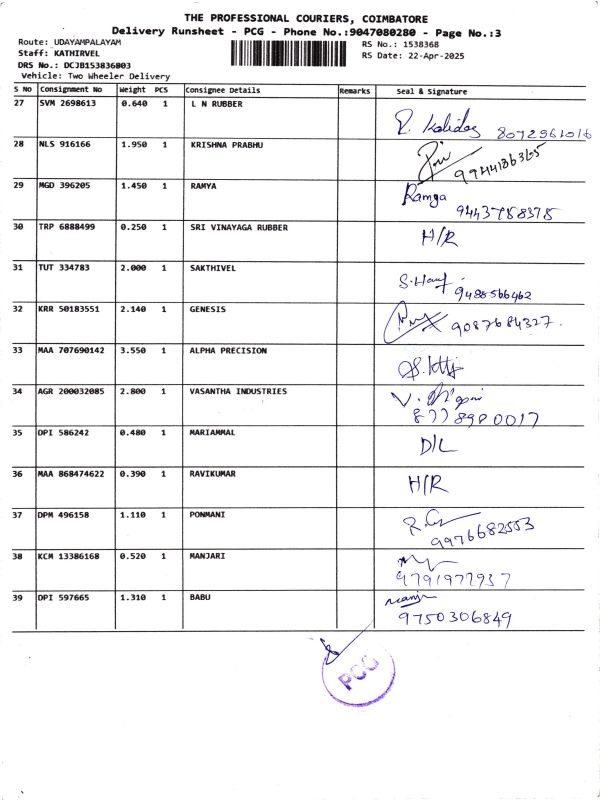 THE PROFESSIONAL COURIERS, COIMBATORE
Delivery Runsheet - PCG - Phone No.:9047080280 - Page No.:3
Route: UDAYAMPALAYAM
Staff: KATHIRVEL
DRS No.: DCJB153836803
Vehicle: Two Wheeler Delivery
RS No.: 1538368
RS Date: 22-Apr-2025
S No Consignment No Weight PCS Consignee Details Remarks Seal & Signature
27 SVM 2698613 0.640 1 L N RUBBER R. Kalidas 8072561016
28 NLS 916166 1.950 1 KRISHNA PRABHU 9944186365
29 MGD 396205 1.450 1 RAMYA Ramya 9443758375
30 TRP 6888499 0.250 1 SRI VINAYAGA RUBBER H/R
31 TUT 334783 2.000 1 SAKTHIVEL 9488566462
32 KRR 50183551 2.140 1 GENESIS 9087684327.
33 MAA 707690142 3.550 1 ALPHA PRECISION
34 AGR 200032085 2.800 1 VASANTHA INDUSTRIES 8778980017
35 DPI 586242 0.480 1 MARIAMMAL D/L
36 MAA 868474622 0.390 1 RAVIKUMAR H/R
37 DPM 496158 1.110 1 PONMANI 9976682553
38 KCM 13386168 0.520 1 MANJARI 9791977937
39 DPI 597665 1.310 1 BABU 9750306849
PCG